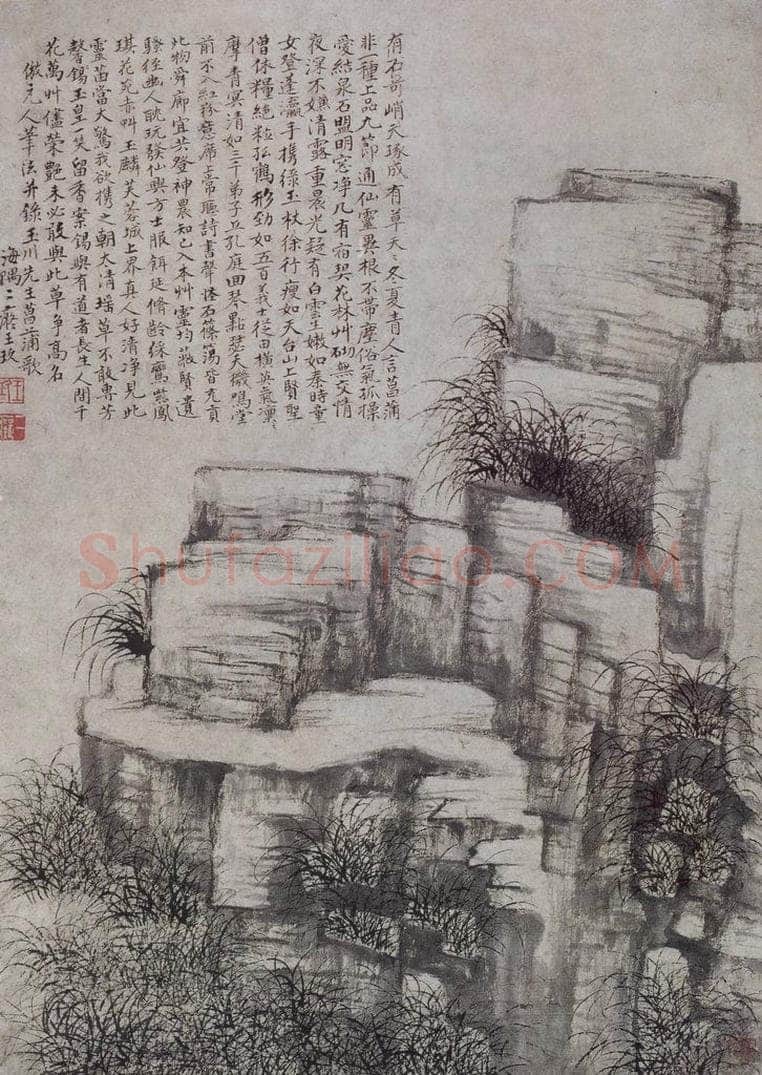 有石奇峭天琢成有草夭〻冬夏青人言菖蒲
非一種上品九節通仙靈異根不帶塵俗氣孤操
愛結泉石盟明窓净几有宿契花林艸砌無交情
夜深不嫌清露重晨光疑有白雲生嫩如秦時童
女登蓬瀛手携綠玉杖徐行瘦如天台山上賢聖
僧休糧絶粒孤鶴形勁如五百義士從田横英氣凜〻
摩青冥清如三千弟子立孔庭回琴點瑟天機鳴堂
前不入紅粉意席上常聽詩書聲怪石篠簜皆充貢
此物舜廊宜共登神農知己入本艸靈均蔽賢遺
騷經幽人眈玩發仙興方士服餌延脩齡綵鸞紫鳳
琪花苑赤虬玉麟芙蓉城上界真人好清净見此
靈苗當大驚我欲携之朝太清瑶草不敢專芳
馨錫玉皇一笑留香案錫與有道者長生人間千
花萬艸儘榮艷未必敢與此草爭高名
倣元人筆法并錄玉川先生菖蒲歌
海隅二癡王玖
Shufaziliao.COM